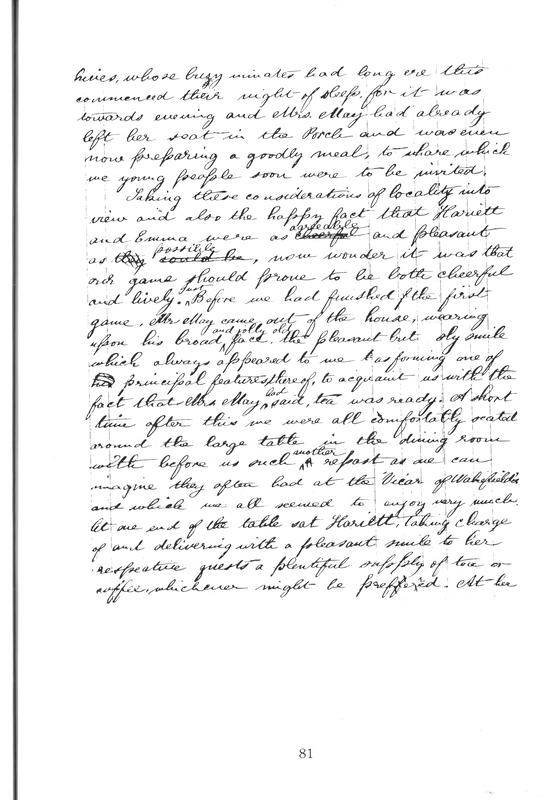 hives, whose buzzy inmates had long ere this
commenced their night of sleep, for it was
towards evening and Mrs. May had already
left her seat in the Porch and was even
now preparing a goodly meal, to share which
we young people soon were to be invited.
Taking these considerations of locality into
view and also the happy fact that Hariett
agreeable
and Emma were as cheerful and pleasant
possible
as they could be, now wonder it was that
our game should prove to be both cheerful
just
and lively. Before we had finished the first
game, Mr May came out of the house, wearing
and jolly old
upon his broad, face, the pleasant but sly smile
which always appeared to me as forming one of
principal features thereof, to acquaint us with the
had
fact that Mrs May said, tea was ready. A short
time after this we were all comfortably seated
around the large table in the dining room
another
with before us such repast as one can
imagine they often had at the Vicar of Wakefields
and which we all seemed to enjoy very much.
At one end of the table sat Hariett, taking charge
of and delivering with a pleasant smile to her
respective guests a plentiful supply of tea or
coffee, whichever might be preffered. At her
81